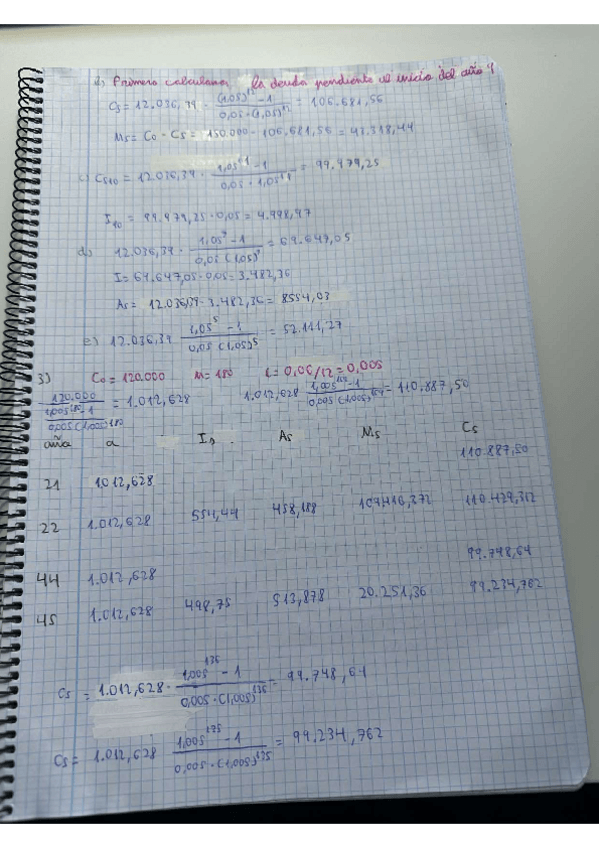 d) Primero calculamos la deuda pendiente al inicio del año 4
Cs = 12.036,34 · (1,05)¹² - 1 / 0,05 · (1,05)¹² = 106.681,56
Ms = Co - Cs = 150.000 - 106.681,56 = 43.318,44
c) Cs10 = 12.036,34 · 1,05¹¹ - 1 / 0,05 · 1,05¹¹ = 99.979,25
I10 = 99.979,25 · 0,05 = 4.998,97
d) 12.036,34 · 1,05⁷ - 1 / 0,05 (1,05)⁷ = 69.647,05
I = 69.647,05 · 0,05 = 3.482,36
As = 12.036,34 - 3.482,36 = 8554,03
e) 12.036,34 1,05⁵ - 1 / 0,05 (1,05)⁵ = 52.111,27
3) Co = 120.000 n = 180 i = 0,06/12 = 0,005
120.000 / 1,005¹⁸⁰ - 1 / 0,005 (1,005)¹⁸⁰ = 1.012,628 1.012,628 · 1,005 - 1 / 0,005 (1,005) = 110.887,50
año a Is As Ms Cs
110.887,50
21 1.012,628
22 1.012,628 554,44 458,188 110.429,312
99.748,64
44 1.012,628
45 1.012,628 498,75 513,878 20.251,36 99.234,762
Cs = 1.012,628 · 1,005¹³⁶ - 1 / 0,005 · (1,005)¹³⁶ = 99.748,64
Cs = 1.012,628 1,005¹³⁵ - 1 / 0,005 · (1,005)¹³⁵ = 99.234,762